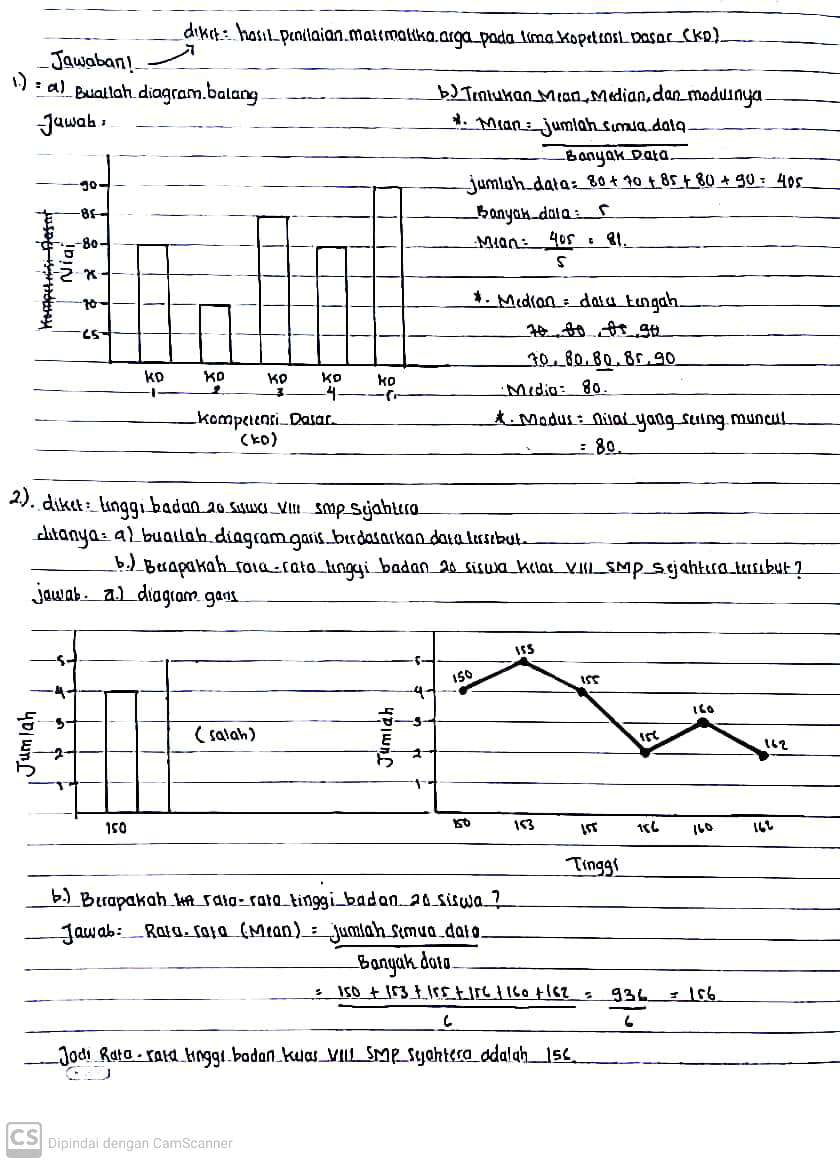 diket: hasil penilaian matematika arga pada lima kopetensi Dasar (KD)
Jawaban!
1.) = a) Buatlah diagram batang
Jawab:
90
85
80
75
70
65
Kompetensi Dasar
Nilai
KD 1
KD 2
KD 3
KD 4
KD 5
Kompetensi Dasar
(KD)
b.) Tentukan Mean, Median, dan modusnya
*. Mean = jumlah semua data
Banyak Data
jumlah data = 80 + 70 + 85 + 80 + 90 = 405
Banyak data = 5
Mean = 405 = 81.
5
*. Median = data tengah
70, 80, 85, 90
70, 80, 80, 85, 90
Media = 80.
*. Modus = nilai yang sering muncul
= 80.
2.). diket = tinggi badan 20 siswa VIII smp sejahtera
ditanya = a) buatlah diagram garis berdasarkan data tersebut.
b.) Berapakah rata-rata tinggi badan 20 siswa kelas VIII SMP Sejahtera tersebut?
jawab. a.) diagram garis
5
4
3
2
1
Jumlah
150
(salah)
5
4
3
2
1
Jumlah
150
153
155
156
160
162
150 153 155 156 160 162
Tinggi
b.) Berapakah rata-rata tinggi badan 20 siswa?
Jawab: Rata-rata (Mean) = jumlah semua data
Banyak data
= 150 + 153 + 155 + 156 + 160 + 162 = 936 = 156
6 6
Jadi Rata-rata tinggi badan kelas VIII SMP Sejahtera adalah 156.
CS Dipindai dengan CamScanner